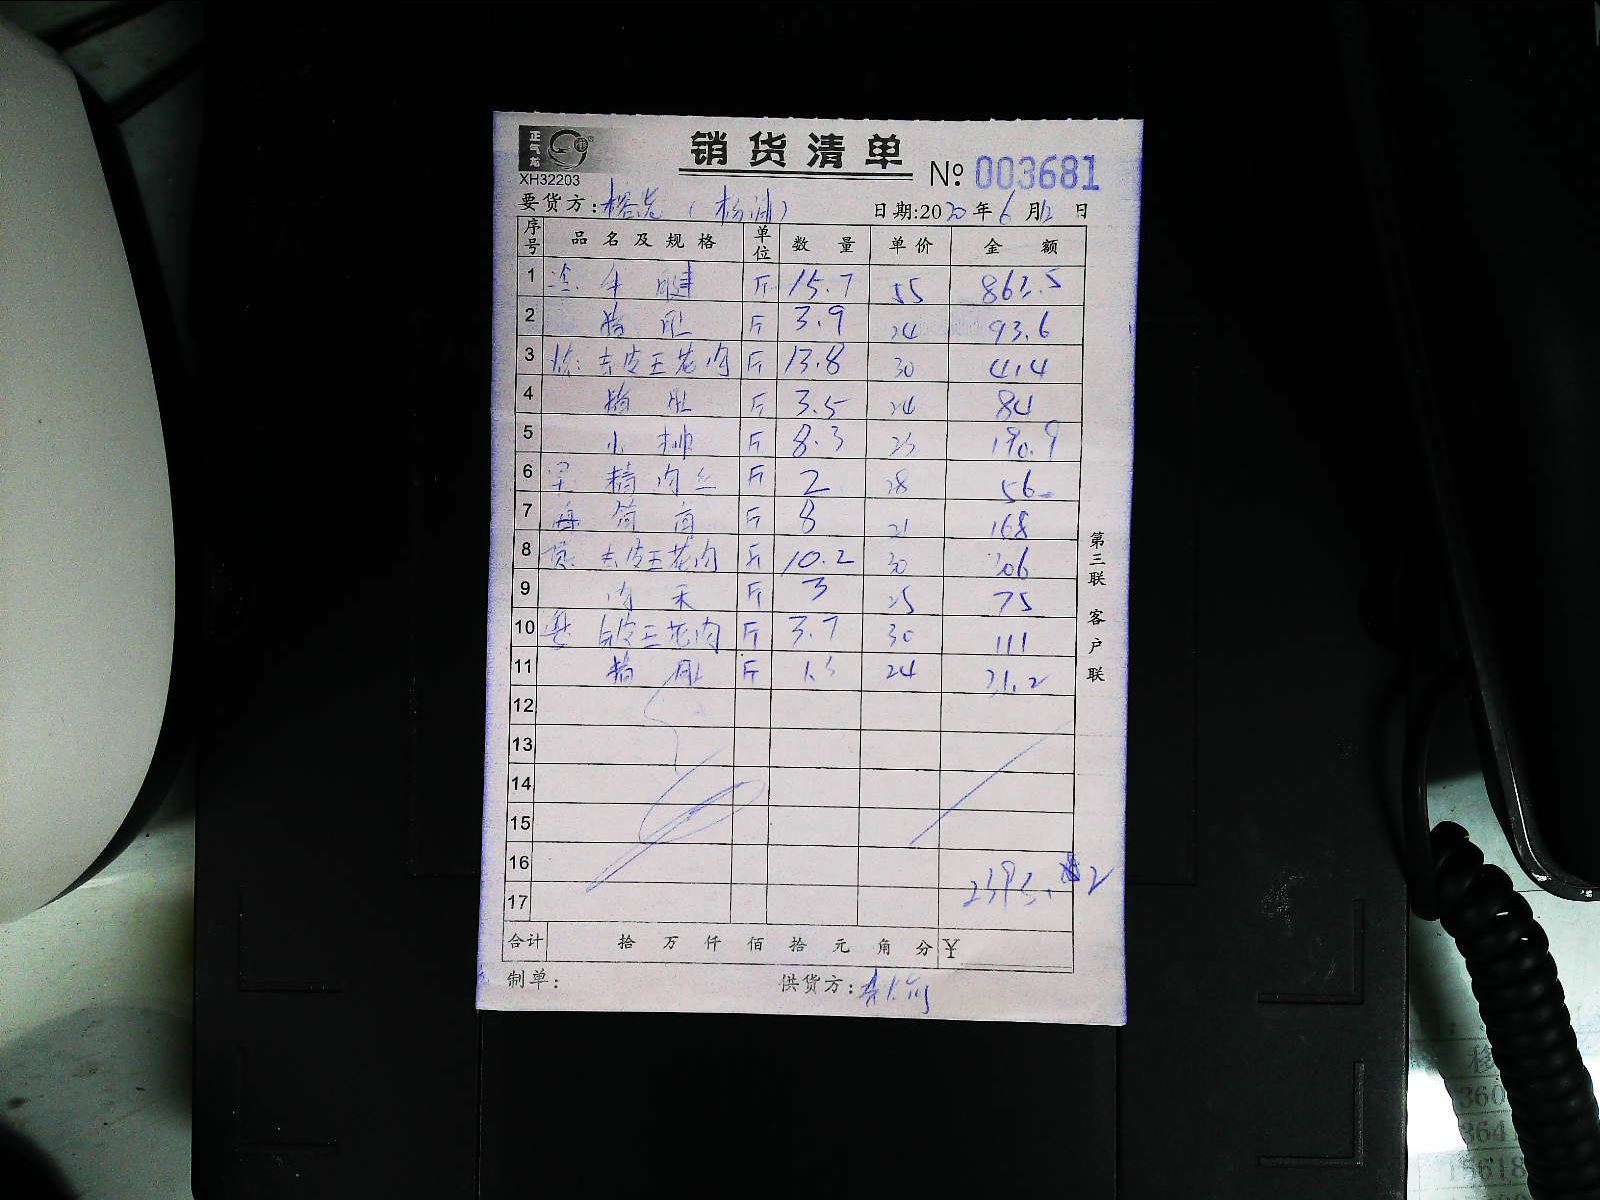 正气龙
XH32203
销货清单
№ 003681
要货方: (杨浦) 日期:2020年6月12日
序号 品名及规格 单位 数量 单价 金额
1 牛腱 斤 15.7 55 863.5
2 猪肚 斤 3.9 24 93.6
3 去皮五花肉 斤 13.8 30 414
4 猪肚 斤 3.5 24 84
5 小排 斤 8.3 23 190.9
6 精肉丝 斤 2 28 56
7 筒骨 斤 8 21 168
8 去皮五花肉 斤 10.2 30 306
9 斤 3 25 75
10 皮五花肉 斤 3.7 30 111
11 猪肚 斤 1.3 24 31.2
12
13
14
15
16
17
2393.2
合计 拾 万 仟 佰 拾 元 角 分 ¥
制单: 供货方:
第三联 客户联